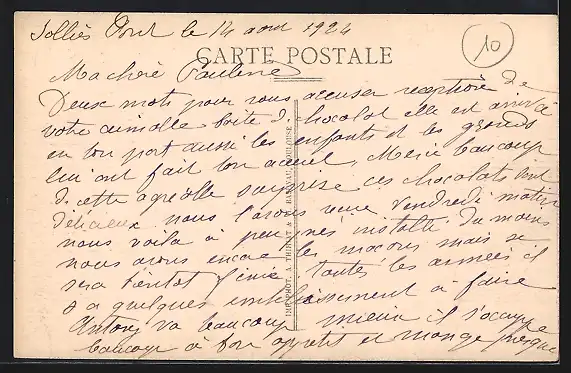 Solliès Pont le 14 aout 1924
10
CARTE POSTALE
Ma chère Pauline
Deux mots pour vous accuser reception de
votre aimable boite de chocolat elle est arrivée
en bon port aussi les enfants et les grands
lui ont fait bon accueil, Merci beaucoup
de cette agréable surprise ces chocolats sont
délicieux nous l'avons reçue vendredi matin
nous voila à peu près installé du moins
nous avons encore les maçons mais se
sera bientot fini toutes les années il
y a quelques embelissement à faire
Antony va beaucoup mieux il s'occupe
beaucoup à bon appetit et mange presque
IMP. PHOT. A. THIRIAT & BASUYAU, TOULOUSE